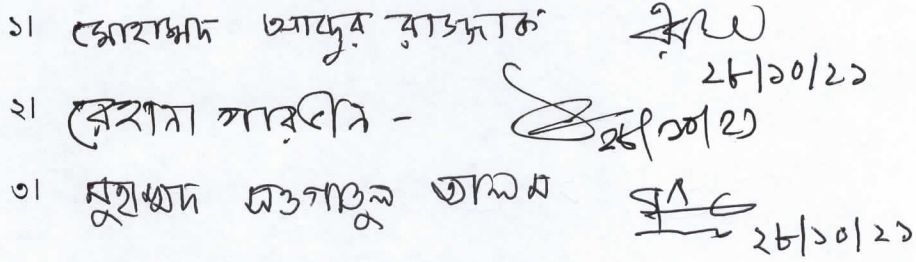 ১। মোহাম্মদ আব্দুর রাজ্জাক
২৮/১০/২১
২। রেহানা পারভীন -
২৮/১০/২১
৩। মুহাম্মদ আলম
২৮/১০/২১